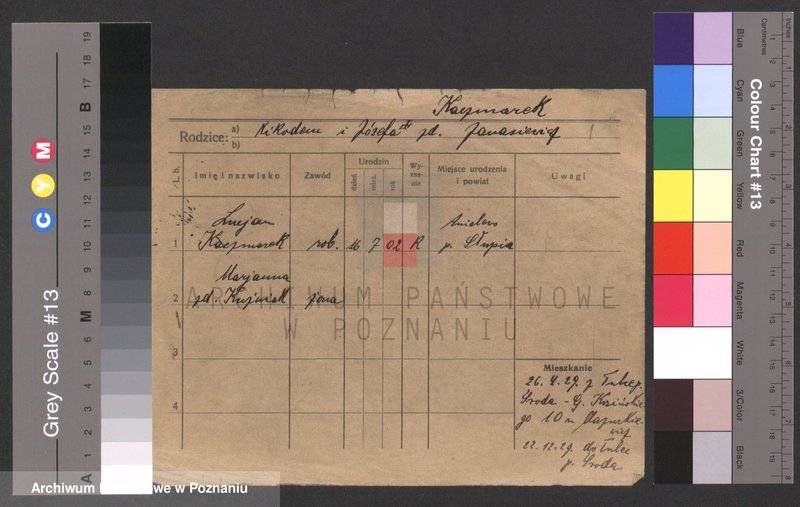 Kaczmarek
Rodzice: a) Nikodem i Józefa zd. Janasiewicz 1
b)
L.b. Imię i nazwisko Zawód Urodzin dzień mies. rok Wyznanie Miejsce urodzenia i powiat Uwagi
Lucjan
1 Kaczmarek rob. 16 7 02 R p. Słupia
Marjanna
2 zd. Kuźniak żona
3
4
Mieszkanie
26. 4. 29. z
Środa - G.
go 10 m
22.12.29. do
p. Środa
ARCHIWUM PAŃSTWOWE
W POZNANIU
Archiwum Państwowe w Poznaniu
Grey Scale #13
C Y M
A 1 2 3 4 5 6 M 8 9 10 11 12 13 14 15 B 17 18 19
Colour Chart #13
Blue
Cyan
Green
Yellow
Red
Magenta
White
3/Color
Black
Centimetres
Inches